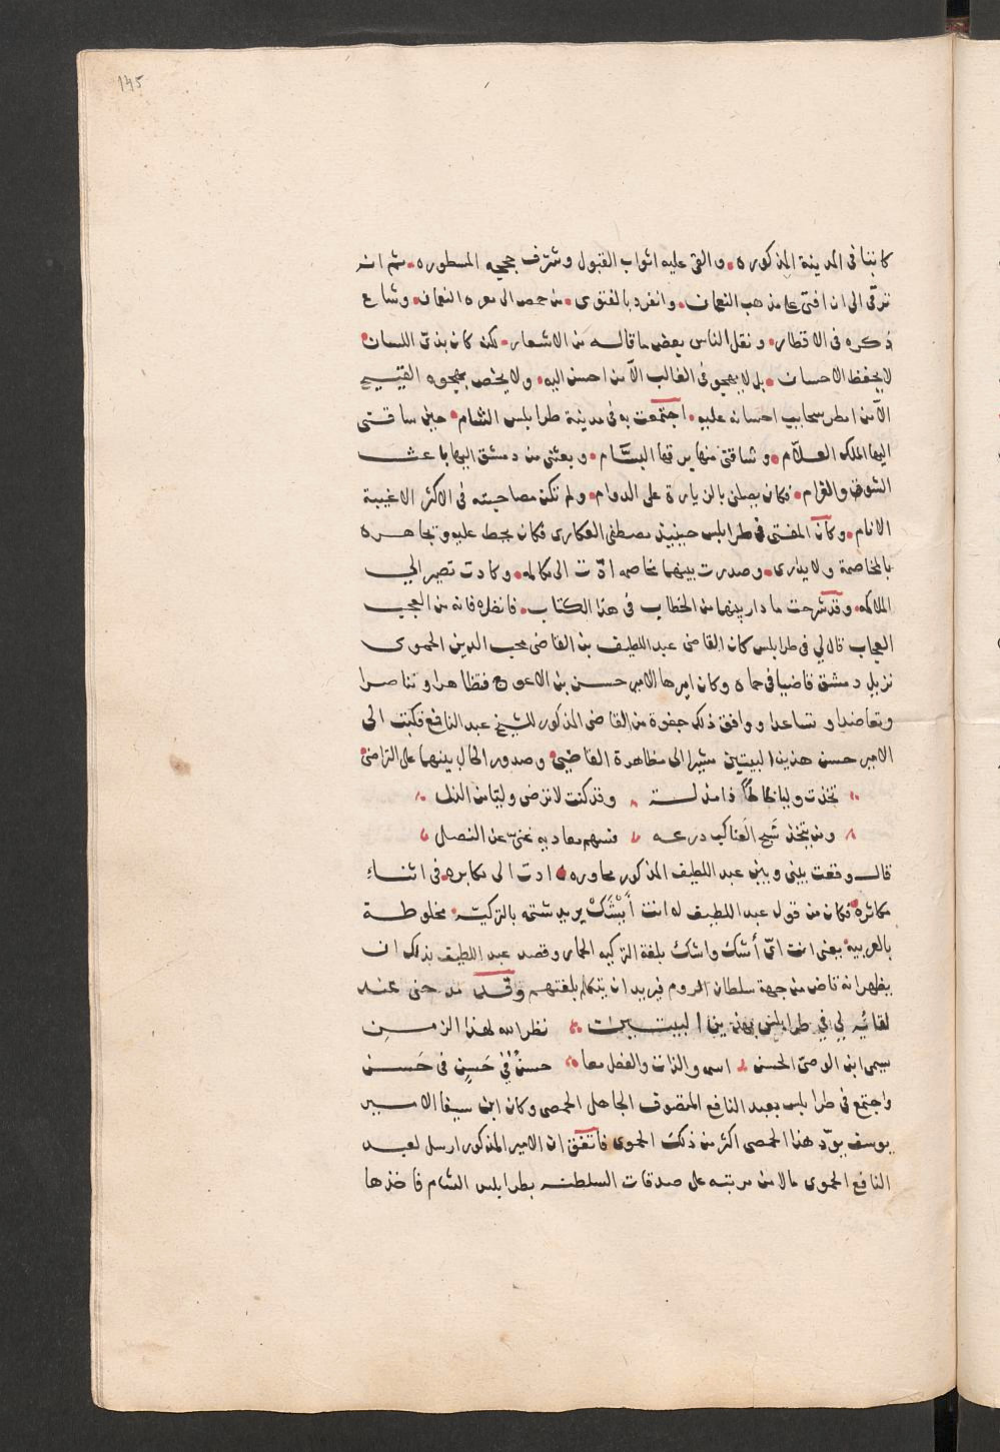 145
كاتبا في المدينة المذكوره. والقي عليه اثواب القبول وشرّف حججه المسطوره. ثم انه
ترقّى الى ان افتى على مذهب النعمان. وانفرد بالفتوى. من حمص الى معرة النعمان. وشاع
ذكره في الاقطار. ونقل الناس بعض ما قاله من الاشعار. لكنه كان بذيّ اللسان.
لا يحفظ الاحسان. بل لا يهجو في الغالب الّا من احسن اليه. ولا يخص بهجوه القبيح
الّا من امطر سحايب احسانه عليه. اجتمعت به في مدينة طرابلس الشام. حين ساقتني
اليها الملك العلّام. وشاقتني منها برقها البسّام. وبعثني من دمشق اليها باعث
الشوق والغرام. فكان يصلني بالزيارة على الدوام. ولم تكن مصاحبته في الاكثر الا غيبة
الانام. وكان المفتي في طرابلس حينيذ مصطفى العكاري فكان يحط عليه ويجاهره
بالمخاصمة ولا يداري. وصدرت بينهما مخاصمه ادّت الى مكالمه. وكادت تصير الى
الملاكمه. وقد شرحت ما دار بينهما من الخطاب في هذا الكتاب. فانظره فانه من العجب
العجاب قال لي في طرابلس كان القاضي عبد اللطيف بن القاضي محب الدين الحموي
نزيل دمشق قاضيا في حماه وكان اميرها الامير حسن بن الاعوج فتظاهرا وتناصرا
وتعاضدا وتساعدا ووافق ذلك جفوة من القاضي المذكور للشيخ عبد النافع فكتب الى
الامير حسن هذين البيتين مشيرا الى مظاهرة القاضي. وصدور الحال بينهما على التراضي.
تخذت وليا خاملًا ذا مذلة وقد كنت لا ترضى وليّا من الذل
ومن يتخذ نسج العناكب درعه فسهم معاديه غنيّ عن النصل
قال وقعت بيني وبين عبد اللطيف المذكور محاوره. ادت الى مكابره. في اثناء
مكاثره. فكان من قول عبد اللطيف له انت أَيْشَكْ يريد شتمه بالتركية. مخلوطة
بالعربية. يعني انت ايّ أشك واشك بلغة التركيه الحمار وقصد عبد اللطيف بذلك ان
يظهر انه قاض من جهة سلطان الروم فيريد ان يتكلم بلغتهم وقد مدحني عند
لقائه لي في طرابلس بهذين البيتين نظر الله لهذا الزمن
سمى ابن الوصيّ الحسن اسم والذات والفعل معا حسنٌ في حَسَنٍ في حَسن
واجتمع في طرابلس بعبد النافع المتصوف الجاهل الحمصي وكان ابن سيفا الامير
يوسف يودّ هذا الحمصي اكثر من ذلك الحموي فاتفق ان الامير المذكور ارسل لعبد
النافع الحموي مالا من مرتبه على صدقات السلطنه بطرابلس الشام فاخذها